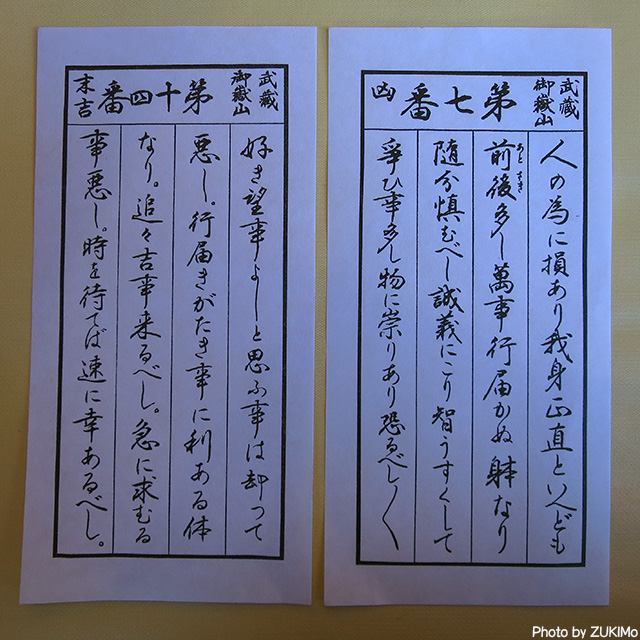 武蔵
御嶽山
第七番
凶
人の為に損あり我身正直といへども
前後多し萬事行届かぬ躰なり
あとさき
随分慎むべし誠義にこり智うすくして
爭ひ事多し物に崇りあり恐るべし〱
武蔵
御嶽山
第十四番
末吉
好き望事よしと思ふ事は却つて
悪し。行届きがたき事に利ある体
なり。追々吉事来るべし。急に求むる
事悪し。時を待てば速に幸あるべし。
Photo by ZUKIMo